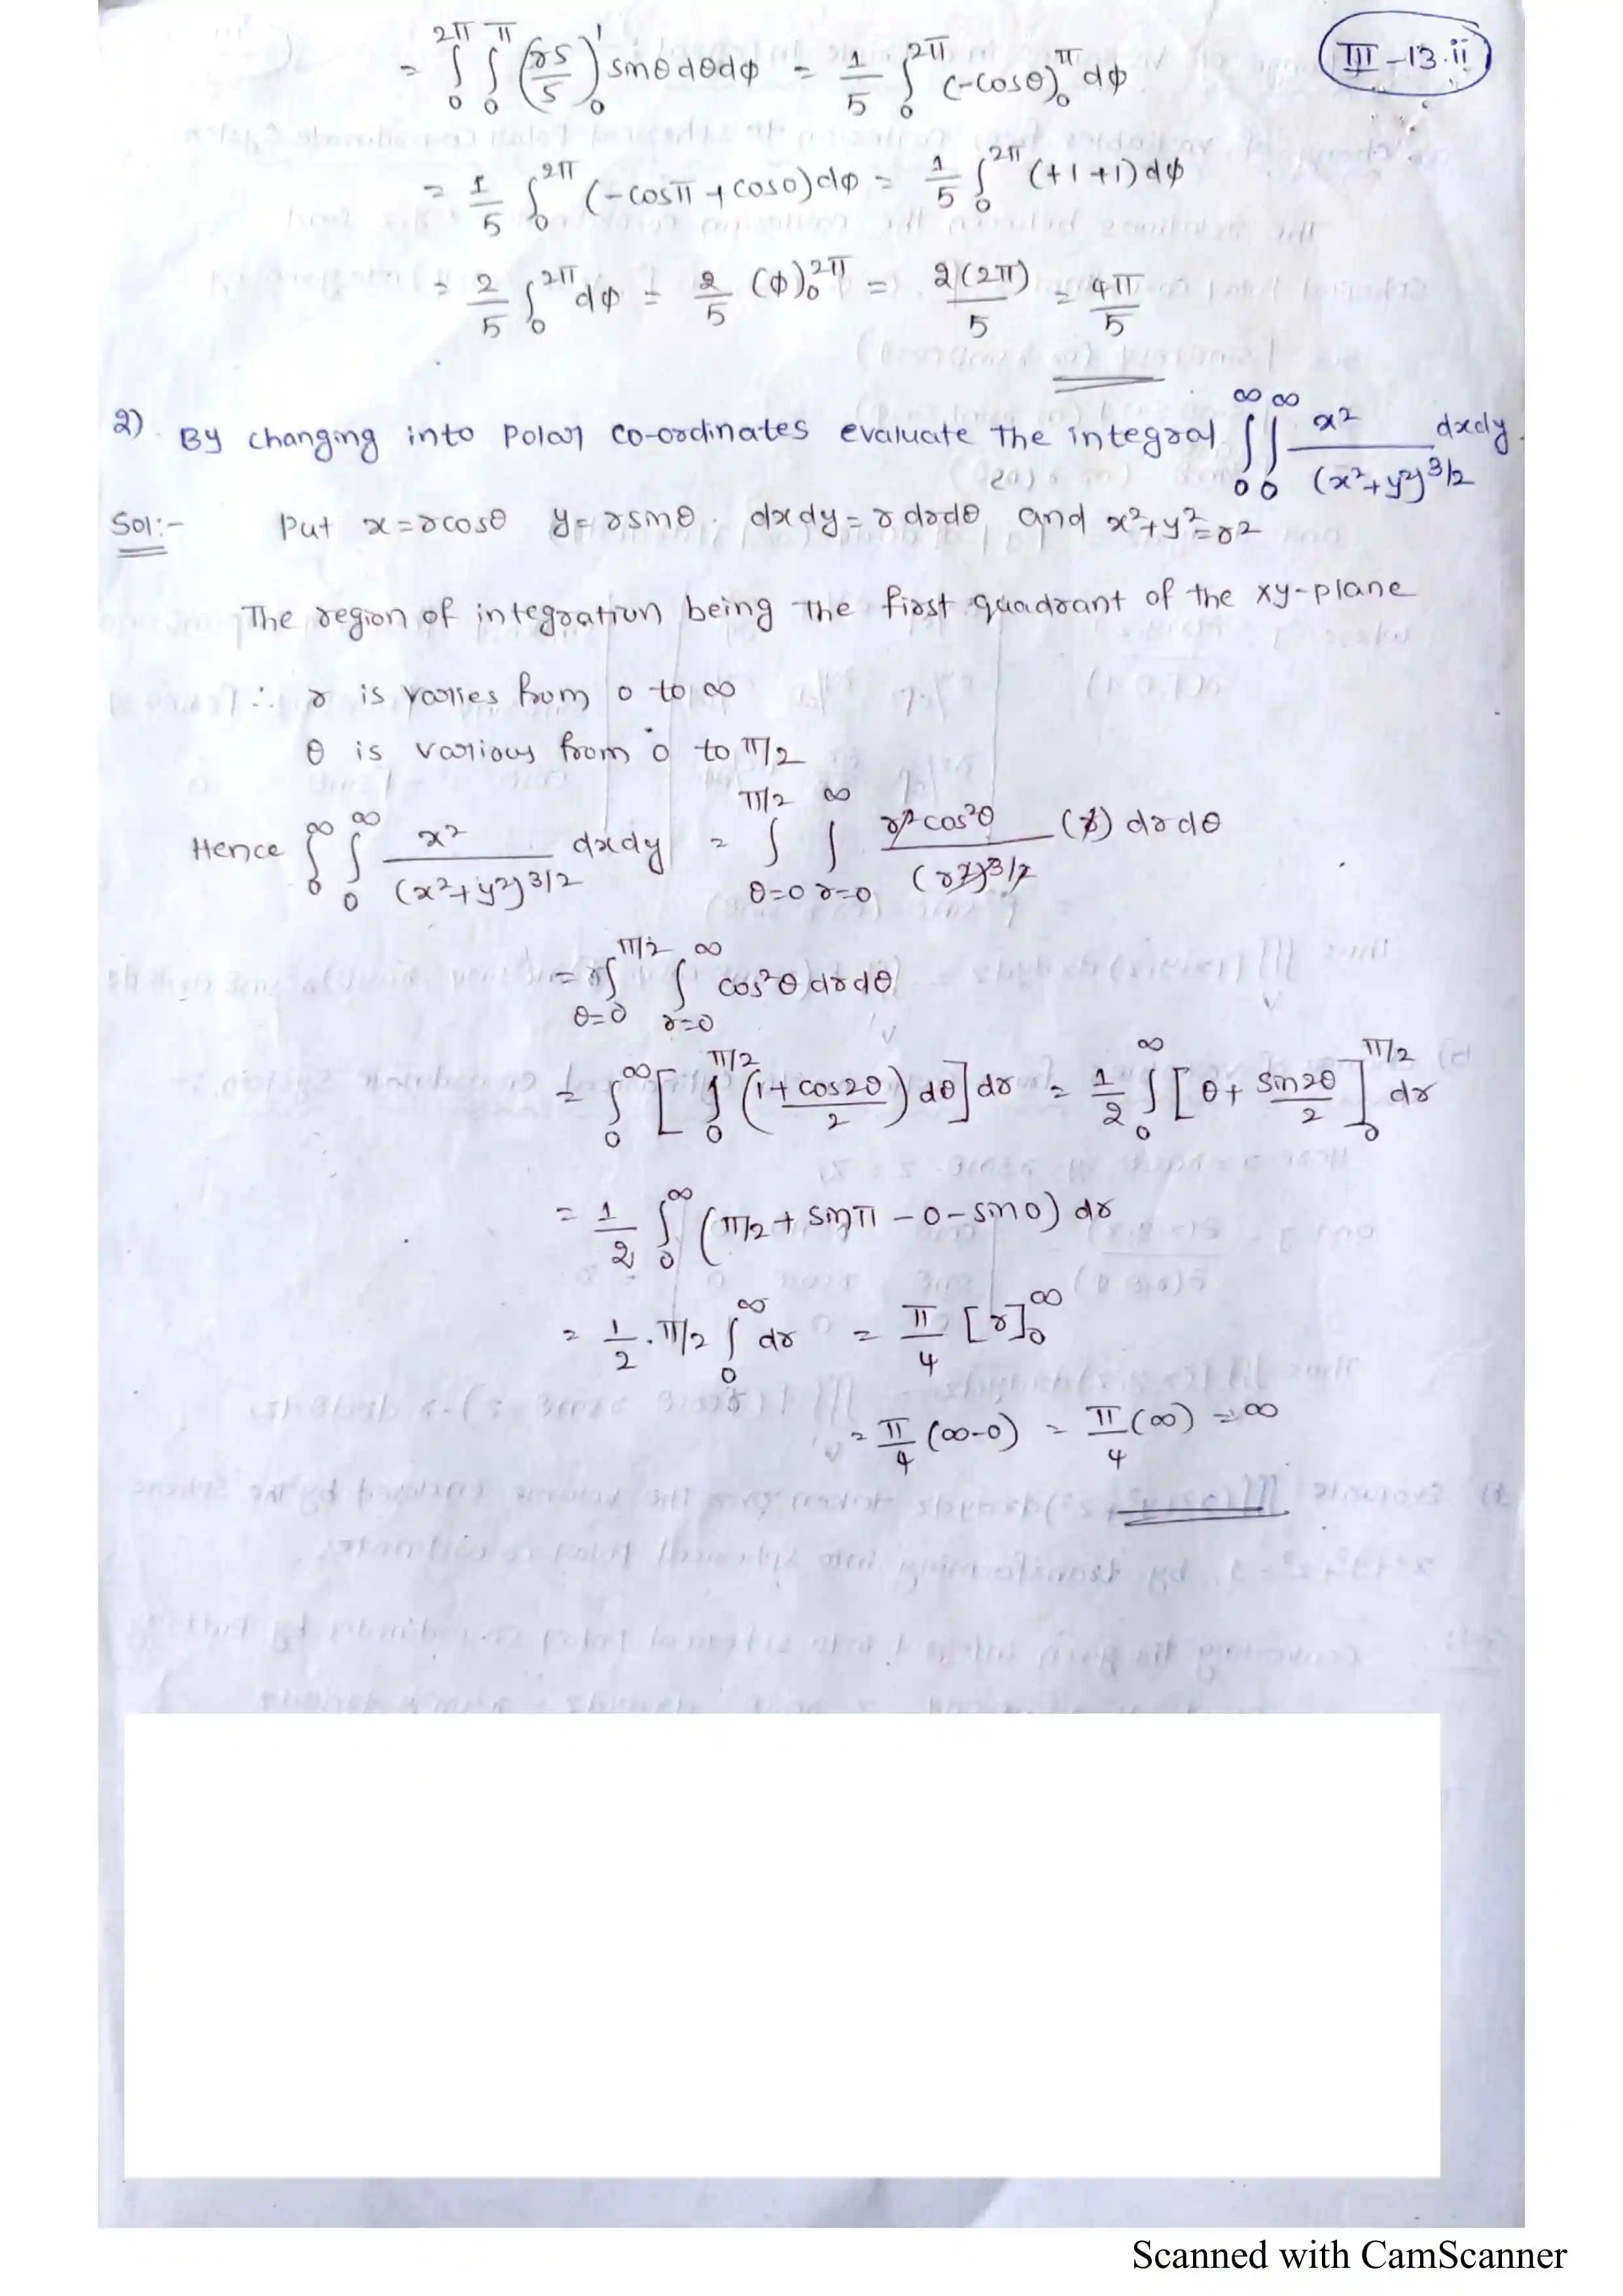 III - 13.ii
= ∫₀^2π ∫₀^π (r5/5)₀^1 sinθ dθ dφ = 1/5 ∫₀^2π (-cosθ)₀^π dφ
= 1/5 ∫₀^2π (-cosπ + cos0) dφ = 1/5 ∫₀^2π (+1+1) dφ
= 2/5 ∫₀^2π dφ = 2/5 (φ)₀^2π = 2(2π)/5 = 4π/5
2) By changing into Polar co-ordinates evaluate the integral ∫₀^∞ ∫₀^∞ x²/(x²+y²)^3/2 dxdy.
Sol:- Put x = rcosθ y = rsinθ. dxdy = r drdθ and x²+y² = r²
The region of integration being the first quadrant of the xy-plane
∴ r is varies from 0 to ∞
θ is various from 0 to π/2
Hence ∫₀^∞ ∫₀^∞ x²/(x²+y²)^3/2 dxdy = ∫_θ=0^π/2 ∫_r=0^∞ r²cos²θ/(r²)^3/2 (r) drdθ
= ∫_θ=0^π/2 ∫_r=0^∞ cos²θ drdθ
= ∫₀^∞ [∫₀^π/2 (1+cos2θ/2) dθ] dr = 1/2 ∫₀^∞ [θ + sin2θ/2]₀^π/2 dr
= 1/2 ∫₀^∞ (π/2 + sinπ - 0 - sin0) dr
= 1/2 . π/2 ∫₀^∞ dr = π/4 [r]₀^∞
= π/4 (∞-0) = π/4 (∞) = ∞
Scanned with CamScanner